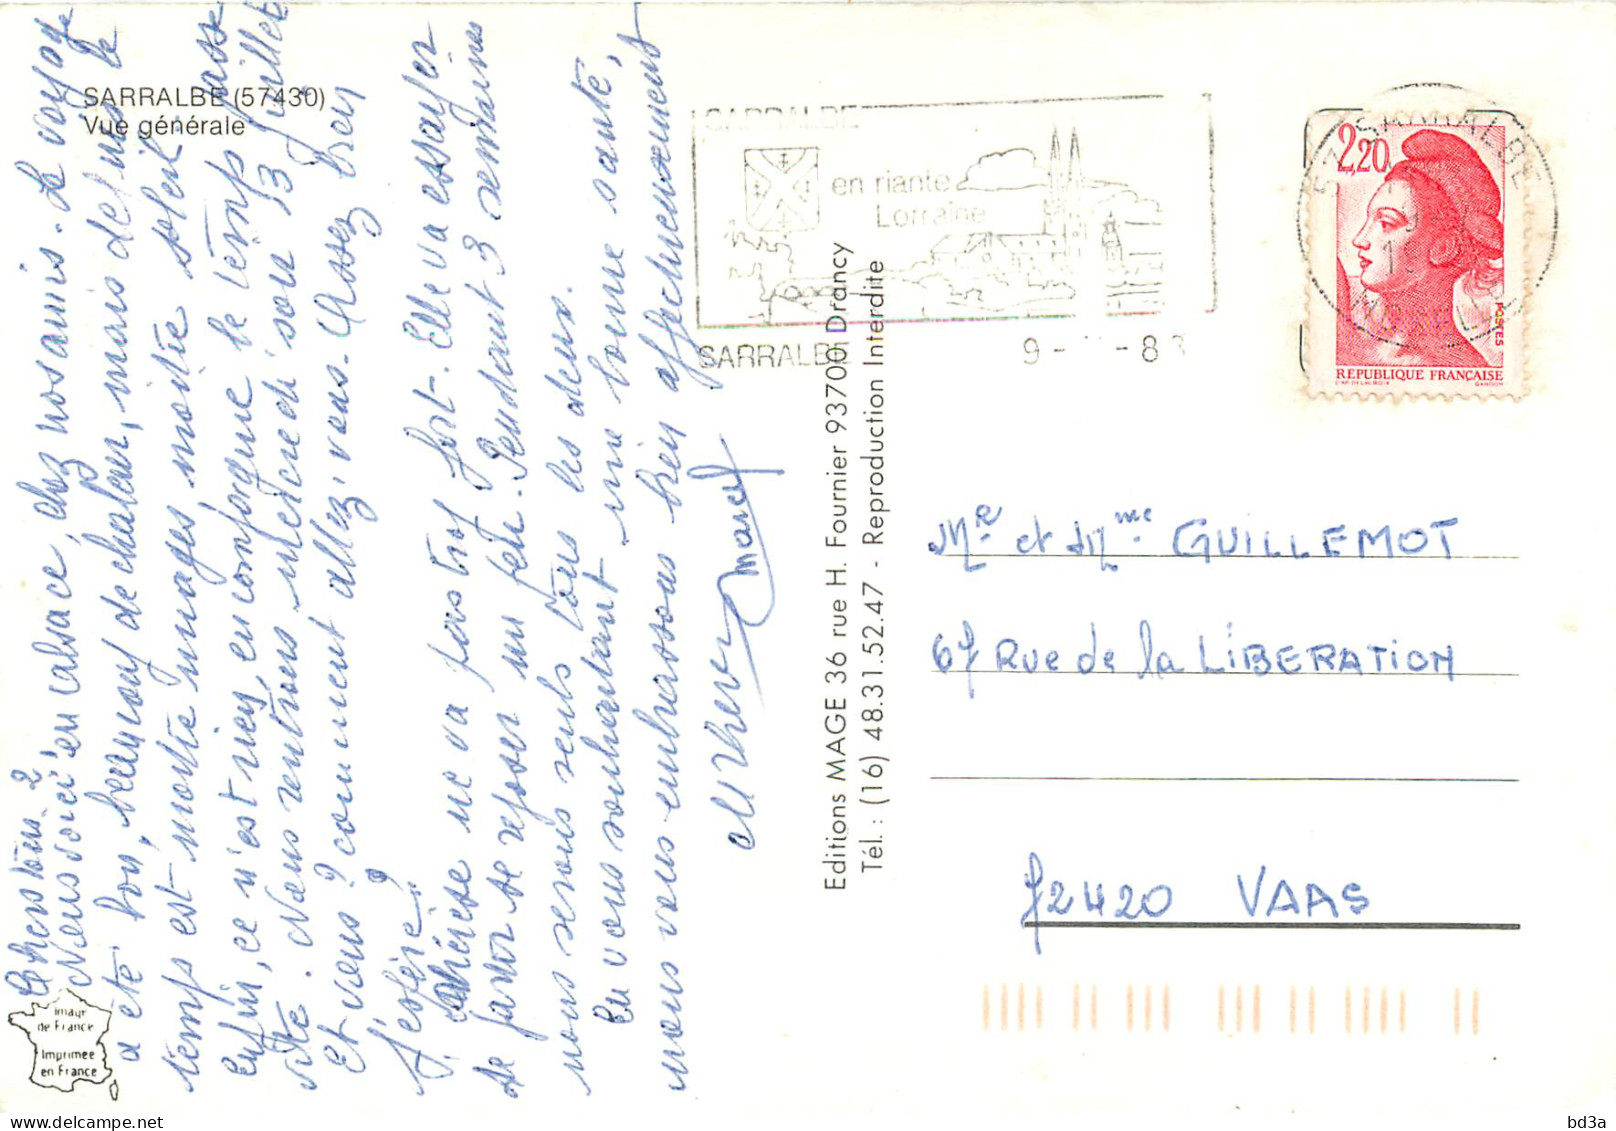 SARRALBE (57430)
Vue générale
Chers tous 2
Nous voici en alsace, chez nos amis. Le voyage
a été bon, beaucoup de chaleur, mais depuis le
temps est moitié nuages, moitié soleil.
Enfin, ce n'est rien, en conforque le temps passe
vite. Nous rentrons mercredi soir 13 juillet
Et vous? comment allez, vous. Assez bien
J'espère?
Thérèse ne va pas trop fort. Elle va essayer
de favor se reposer un peu. Pendant 3 semaines
nous serons seuls tous les deux.
En vous souhaitant une bonne santé,
nous vous embrassons bien affectueusement
Marcel
image
de France
Imprimée
en France
Editions MAGE 36 rue H. Fournier 93700 Drancy
Tél. : (16) 48.31.52.47 - Reproduction Interdite
SARRALBE
en riante
Lorraine
SARRALBE
9 - - 8
57 SARRALBE
MOSELLE
2,20
POSTES
REPUBLIQUE FRANÇAISE
D'AP. DELACROIX GANDON
Mr et Mme GUILLEMOT
67 Rue de la LIBERATION
72420 VAAS
bd3a